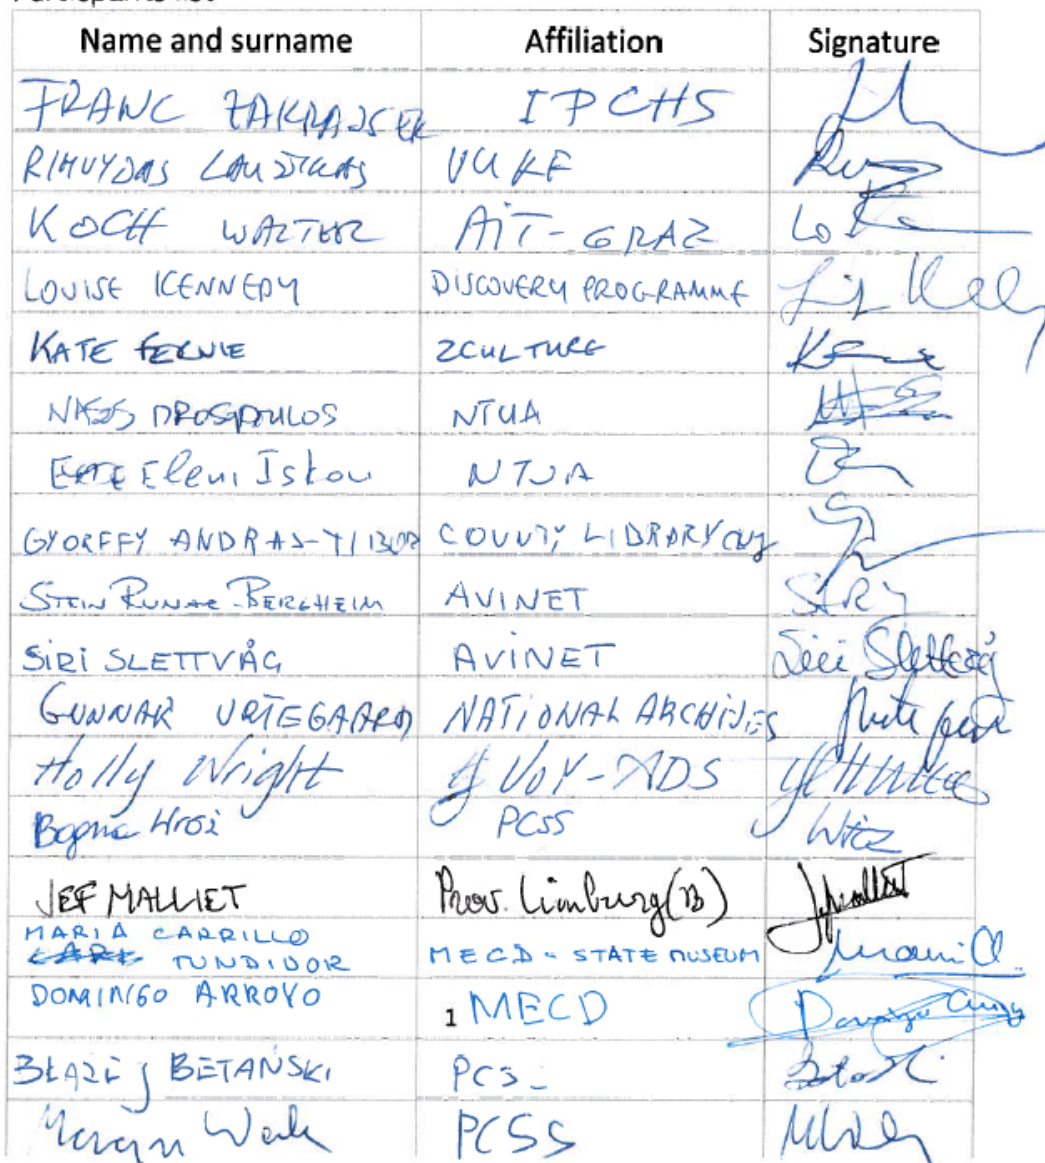 Participants list
Name and surname Affiliation Signature
FRANC ZAKRAJSEK IPCHS
RIMVYDAS LAUZIKAS VUKF
KOCH WALTER AIT-GRAZ
LOUISE KENNEDY DISCOVERY PROGRAMME
KATE FERNIE 2CULTURE
NASOS DROSOPOULOS NTUA
Eleni Iskou NTUA
GYORFFY ANDRAS-TIBOR COUNTY LIBRARY CLUJ
STEIN RUNAR BERGHEIM AVINET
SIRI SLETTVÅG AVINET Siri Slettvåg
GUNNAR URTEGAARD NATIONAL ARCHIVES
Holly Wright UoY-ADS
PCSS
JEF MALLIET Prov. Limburg (B)
MARIA CARRILLO
TUNDIDOR MECD - STATE MUSEUM
DOMINGO ARROYO 1 MECD
BŁAŻEJ BETAŃSKI
PCSS